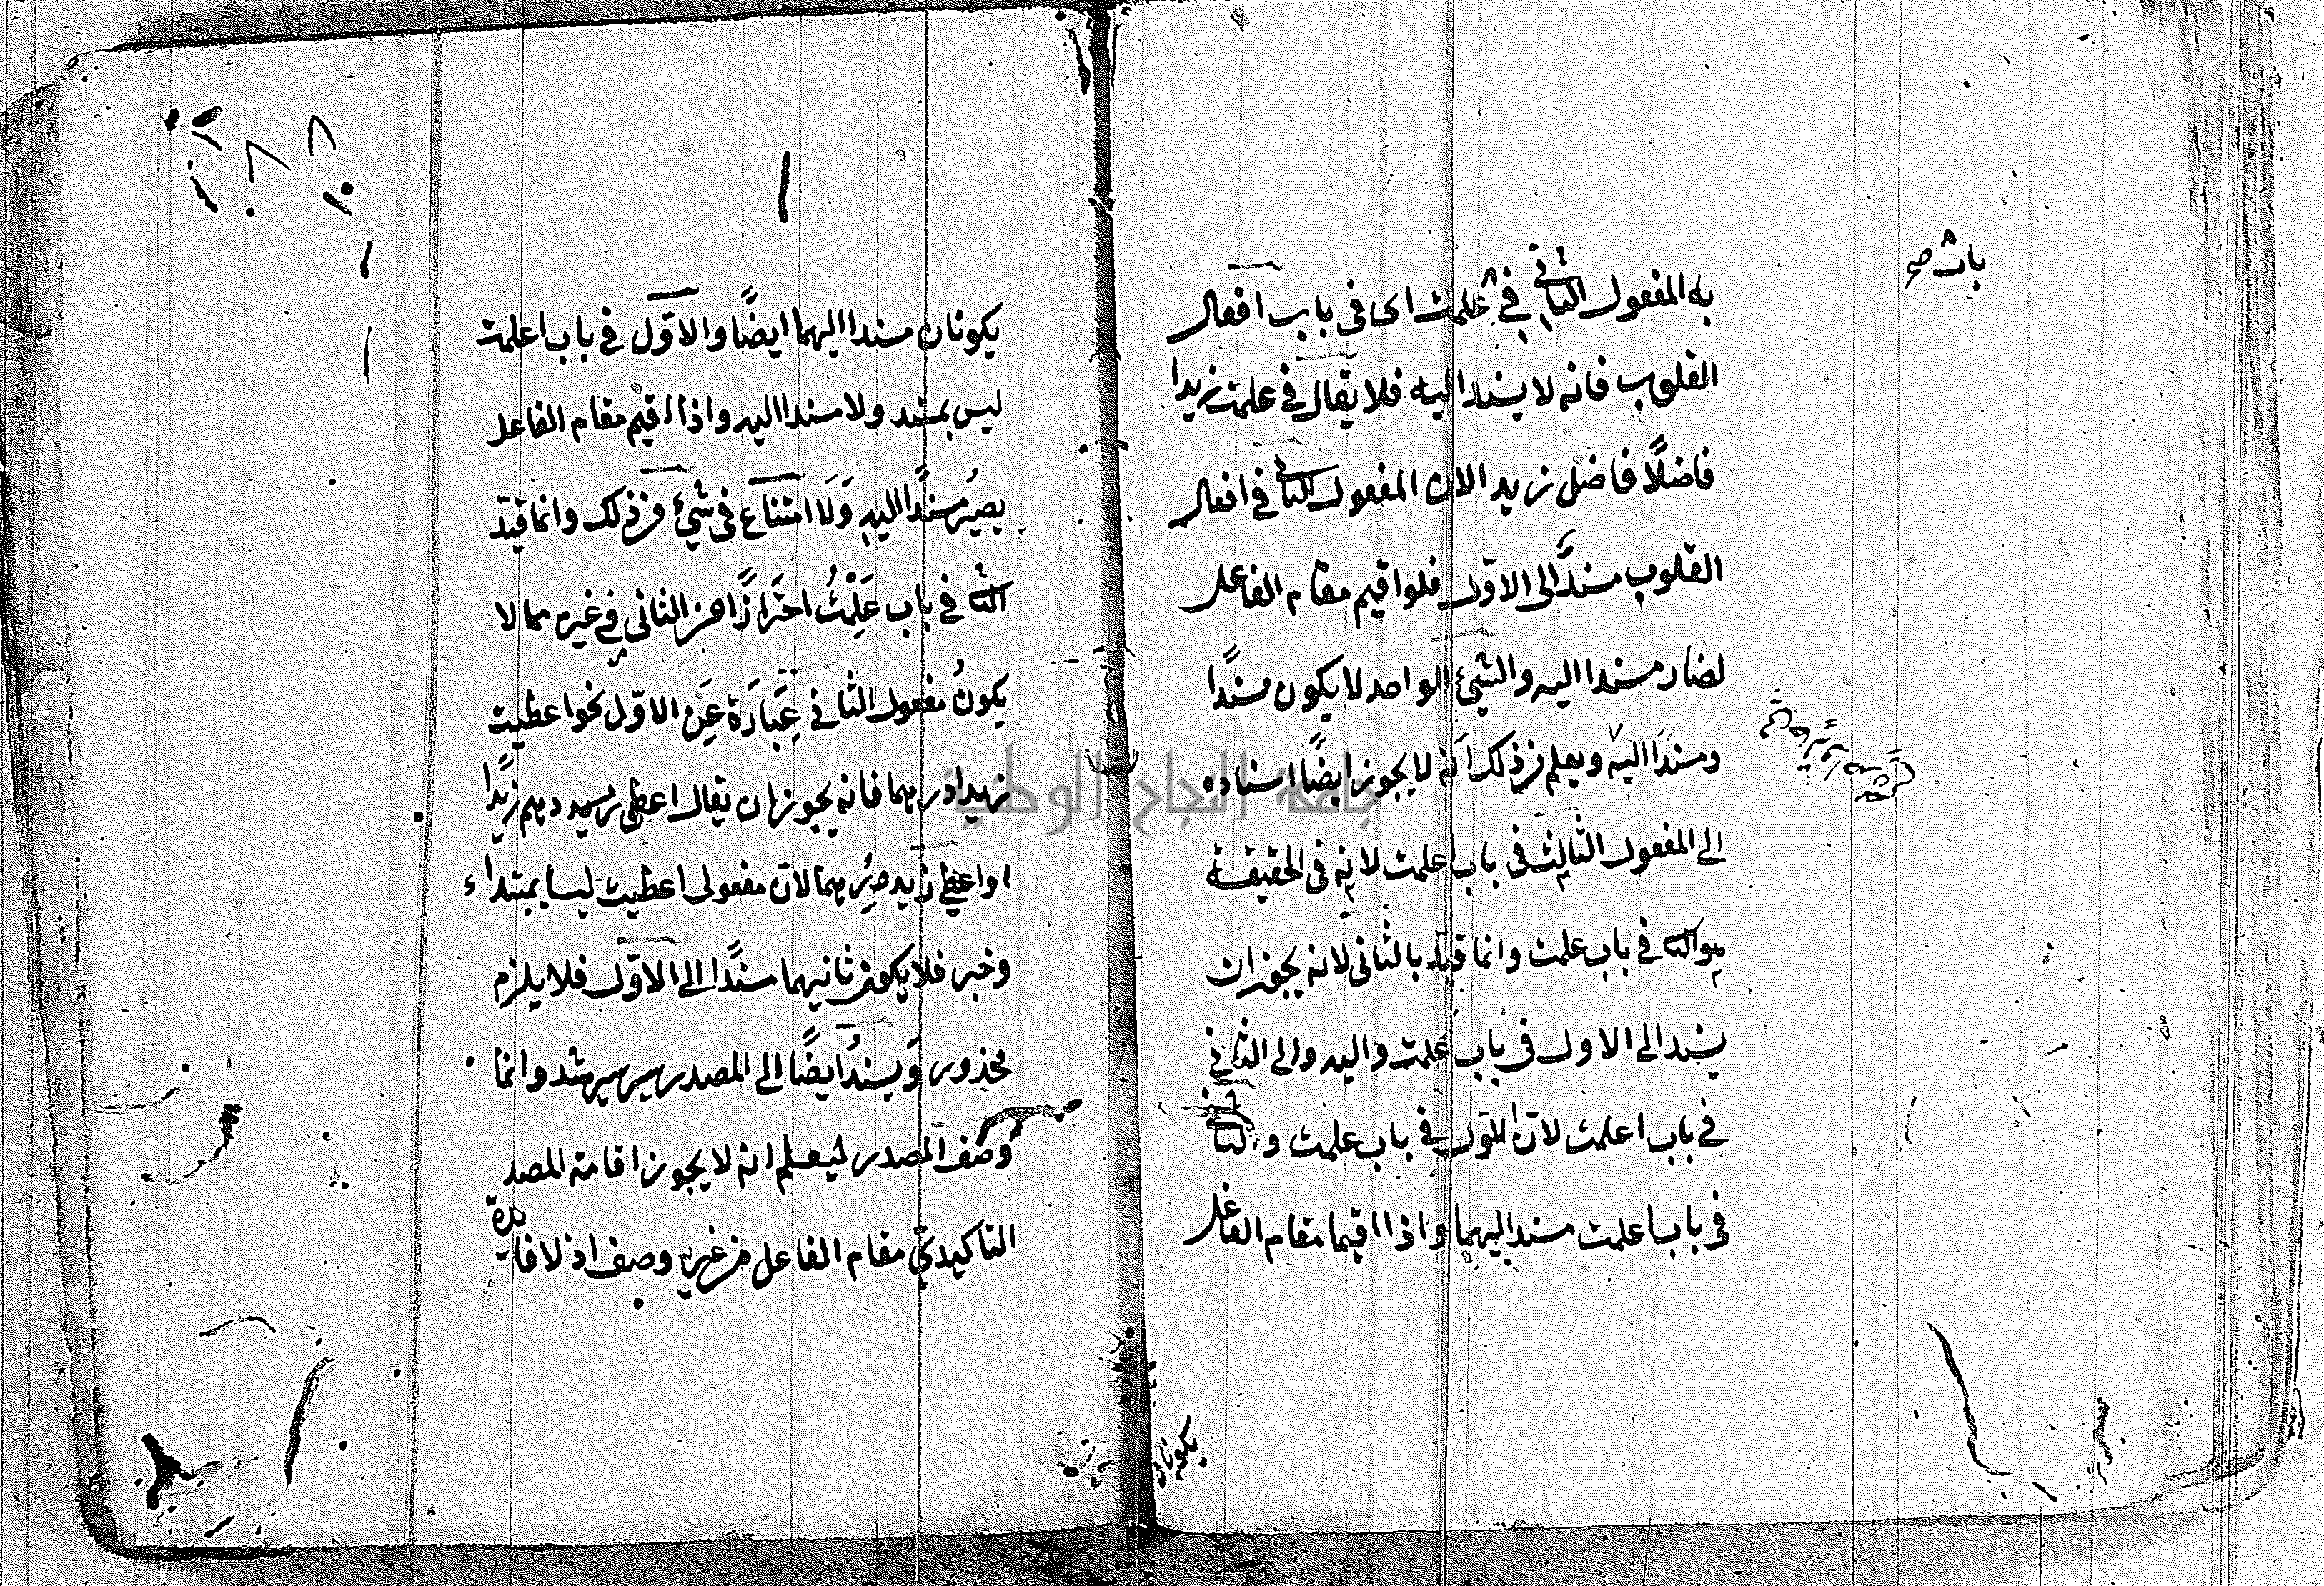 باب صح
به المفعول الثاني في علمت اى فى باب افعال
القلوب فانه لا يسند اليه فلا يقال في علمت زيدا
فاضلًا فاضل زيدا لان المفعول الثاني في افعال
القلوب مسندٌ الى الاوّل فلو اقيم مقام الفاعل
لصار مسندا اليه والشئ الواحد لا يكون مسندًا
ومسندًا اليه ويعلم من ذلك انّه لا يجوز ايضًا اسناده
الى المفعول الثالث فى باب اعلمت لانه فى الحقيقة
هو الثا في باب علمت وانما قيد بالثانى لانه يجوز ان
يسند الى الاول فى باب علمت واليه والى الثاني
في باب اعلمت لان الاوّل في باب علمت والثانى
فى باب اعلمت مسند اليهما واذا اقيما مقام الفاعل
يكونان
يكونان مسندا اليهما ايضًا والاوّل في باب اعلمت
ليس بمسند ولا مسندا اليه واذا اقيم مقام الفاعل
يصيرُ مسندًا اليهِ وَلَا امتناع فى شئ من ذلك وانما قيّد
الثا في باب عَلِمْتُ احترازًا عن الثاني في غيره مما لا
يكونُ مفعول الثاني عِبَارَة عَن الاوّل نحو اعطيت
زيدا درهما فانه يجوز ان يقال اعطى درهم زيدًا
او اعطي زيد درهما لان مفعولى اعطيت ليسا بمبتداء
وخبر فلا يكون ثانيهما مسندًا الى الاوّل فلا يلزم
محذور وَيسندُ ايضًا الى المصدر سير سير شد وانما
وصف المصدر ليعلم انه لا يجوز اقامة المصدر
التاكيديّ مقام الفاعل من غير وصف اذ لا فائدة
جامعة النجاح الوطنية